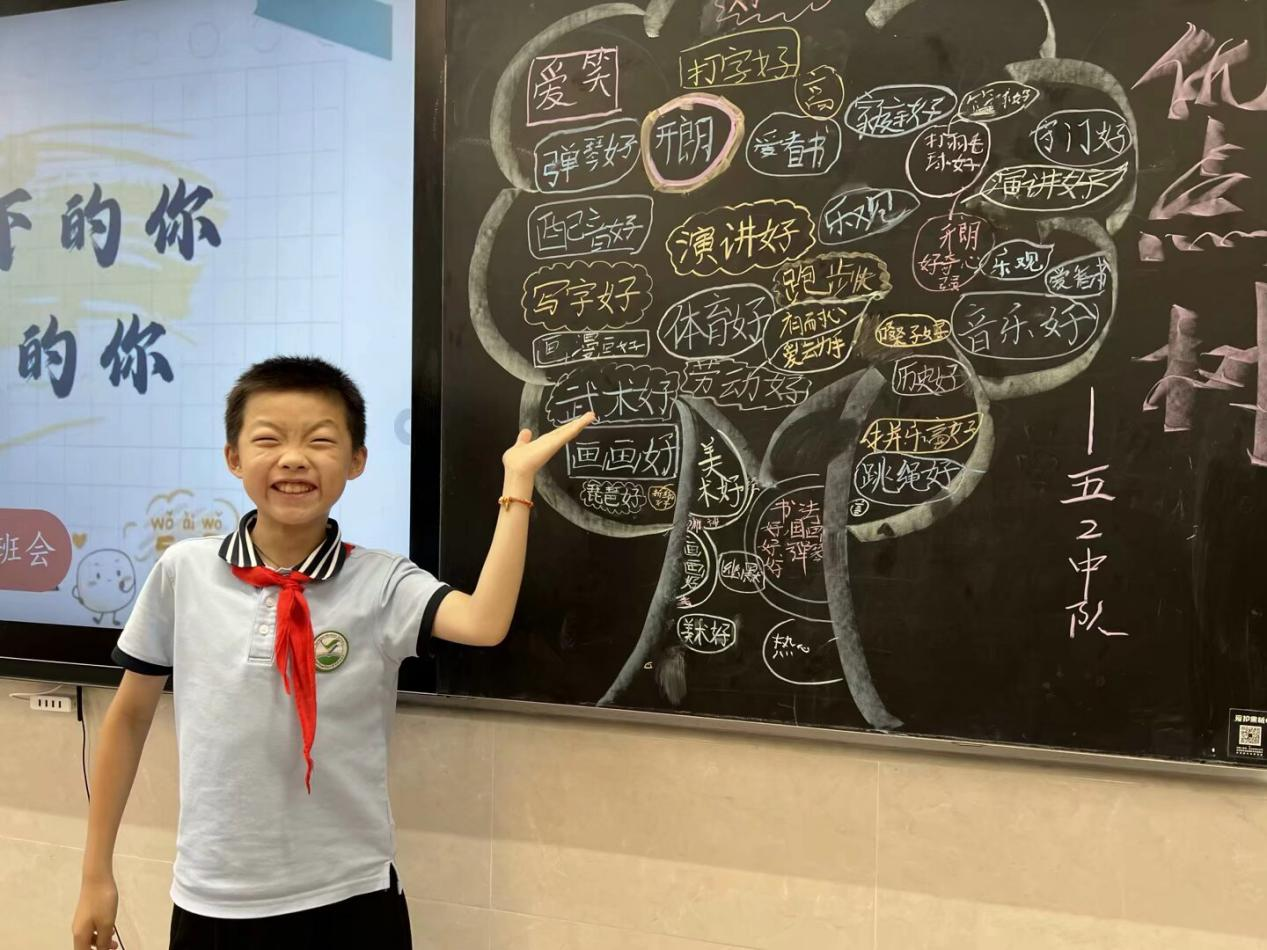 的你
的你
班会
wǒ ài wǒ
优点树
——五2中队
爱笑
打字好
高
弹琴好
开朗
爱看书
家庭好
篮球好
打羽毛
球好
专门好
配音好
演讲好
乐观
演讲好
开朗
好奇心
强
乐观
爱看书
写字好
跑步快
体育好
有耐心
爱运动
音乐好
画漫画好
武术好
劳动好
历史好
画画好
美
术好
拼乐高好
跳绳好
琵琶好
书法
好国画
好弹琴
好好
画
画
好
幽默
美术好
热心